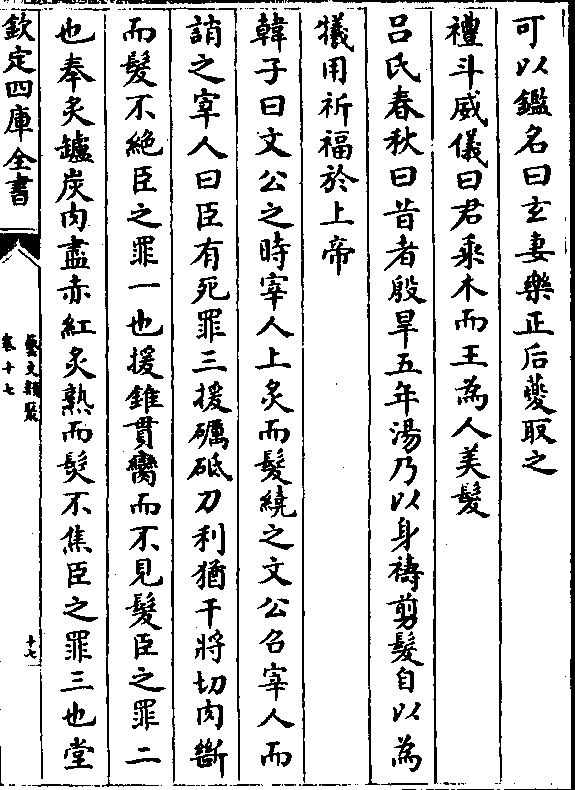 可以鑑名曰玄妻樂正后夔取之
禮斗威儀曰君乘木而王為人美髮
呂氏春秋曰昔者殷旱五年湯乃以身禱剪髮自以為
犧用祈福於上帝
韓子曰文公之時宰人上炙而髮繞之文公召宰人而
誚之宰人曰臣有死罪三援礪砥刀利猶干將切肉斷
而髮不絶臣之罪一也援錐貫臠而不見髮臣之罪二
也奉炙鑪炭肉盡赤紅炙熟而髮不焦臣之罪三也堂
欽定四庫全書
藝文類聚
卷十七
十七